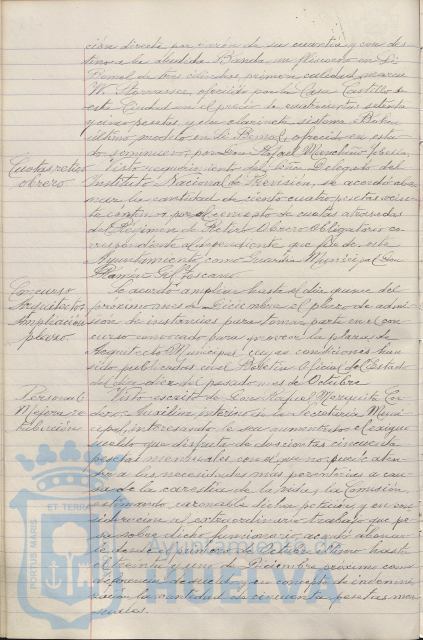 ción directa por razón de su cuantía y con des-
tino a la aludida Banda un fliscorno en Si
Bemol de tres cilindros primera calidad, marca
ofrecido por la Casa Castillo de
esta Ciudad en el precio de cuatrocientas setenta
y cinco pesetas, y un clarinete, sistema
último modelo en Si Bemol, ofrecido en esta-
do seminuevo, por Don Rafael
Cuotas retiro
obrero
Visto requerimiento del Señor Delegado del
Instituto Nacional de Previsión, se acordó abo-
nar la cantidad de ciento cuatro pesetas ochen-
ta céntimos por el concepto de cuotas atrasadas
del Régimen de Retiro Obrero Obligatorio co-
rrespondiente al dependiente que fue de este
Ayuntamiento como Guardia Municipal Don
Toscano
Concurso
Arquitecto
Ampliación
plazo
Se acordó ampliar hasta el día quince del
próximo mes de Diciembre el plazo de admi-
sión de instancias para tomar parte en el con-
curso convocado para proveer la plaza de
Arquitecto Municipal cuyas condiciones han
sido publicadas en el Boletín Oficial del Estado
del día diez del pasado mes de Octubre
Personal
Mejora re-
tribución
Visto escrito de Don Rafael Mezquita Cor-
dero Auxiliar interino de la Secretaría Muni-
cipal, interesando le sea aumentado el exiguo
sueldo que disfruta de doscientas cincuenta
pesetas mensuales con el que no puede aten-
der a las necesidades más perentorias a cau-
sa de la carestía de la vida; la Comisión,
estimando razonable dicha petición y en con-
sideración al extraordinario trabajo que pe-
sa sobre dicho funcionario acordó abonar-
le desde el primero de Octubre último hasta
el treinta y uno de Diciembre próximo como
diferencia de sueldo y en concepto de indemni-
zación la cantidad de cincuenta pesetas men-
suales.
PORTUS MARIS ET TERRAE
Ayuntamiento de
HUELVA